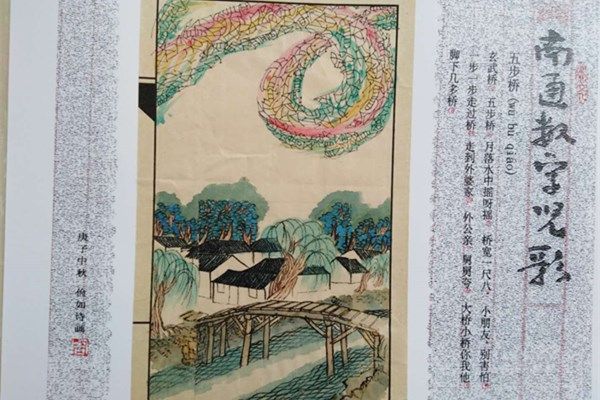 南通数字兒歌
五步桥 (wu bu qiao)
玄武桥。五步桥，月落水中摇呀摇。桥宽一尺八，小朋友，别害怕，
一步一步走过桥。走到外婆家，外公亲，舅舅夸。大桥小桥你我他，
脚下几多桥。
庚子中秋 如诗画